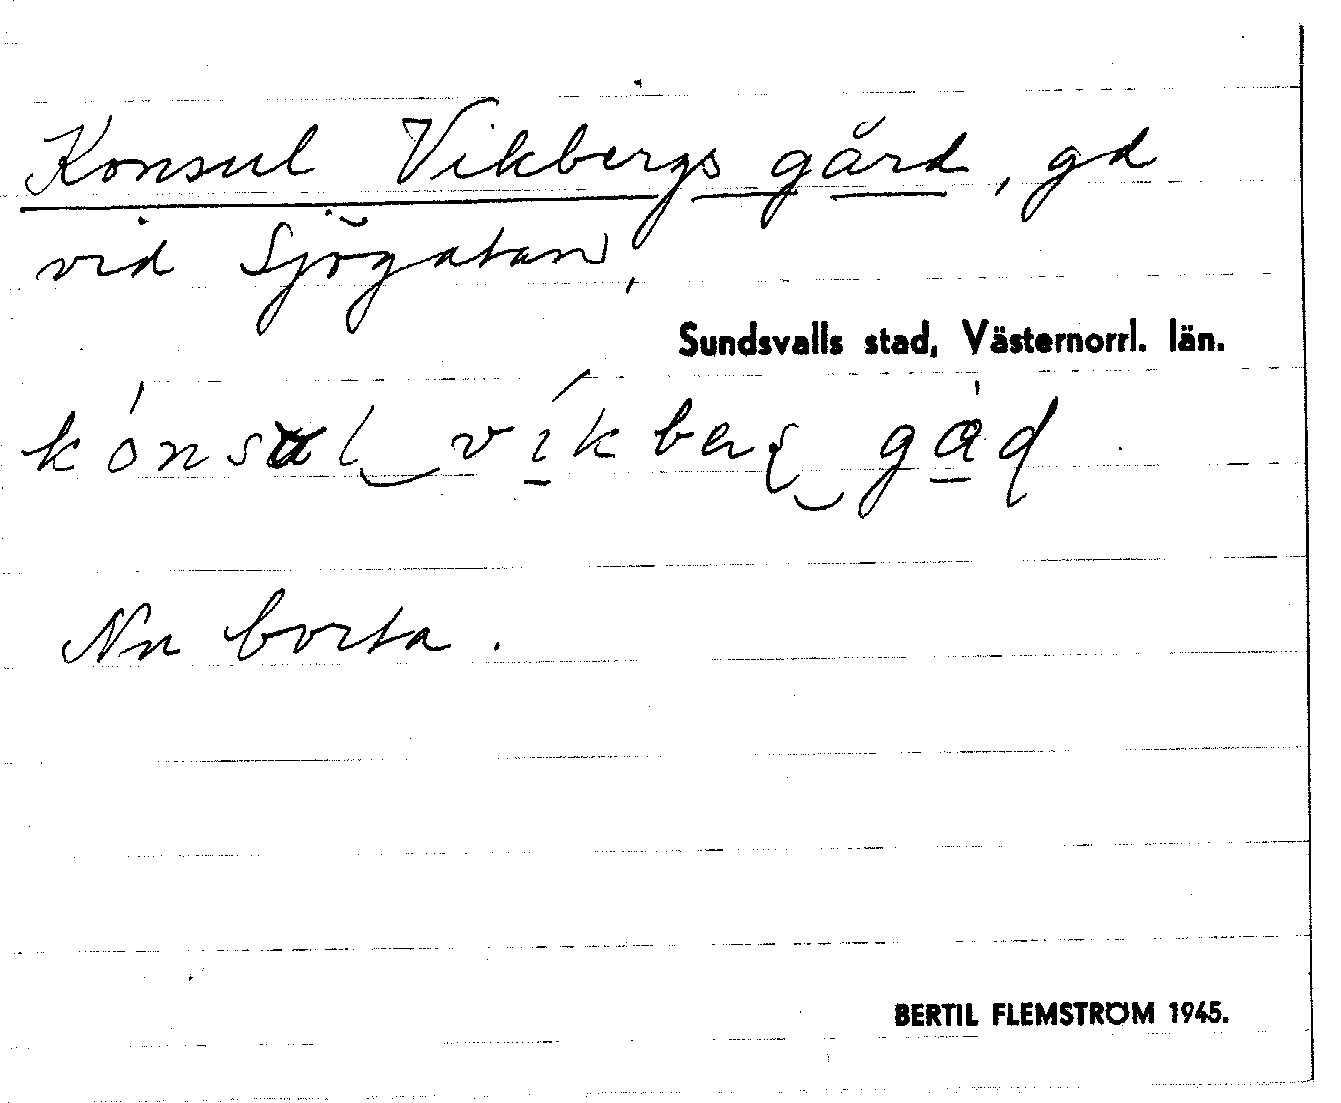 Konsul Vikbergs gård, gd
vid Sjögatan,
Sundsvalls stad, Västernorrl. län.
kónsul‿víkbeṣ‿gád
Nu borta.
BERTIL FLEMSTRÖM 1945.